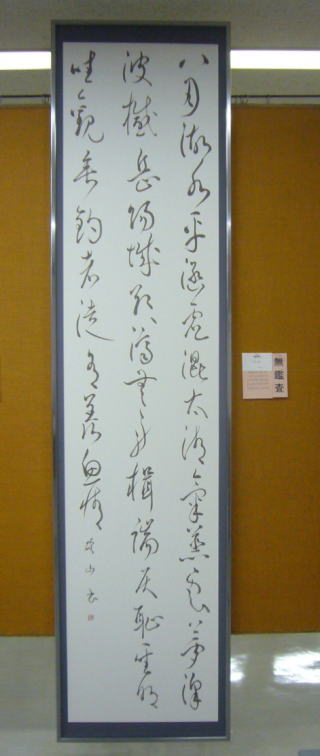 八月湖水平涵虚混太清氣蒸雲夢澤
波撼岳陽城欲濟無舟楫端居恥聖明
坐觀垂釣者徒有羨魚情
山書
無鑑査